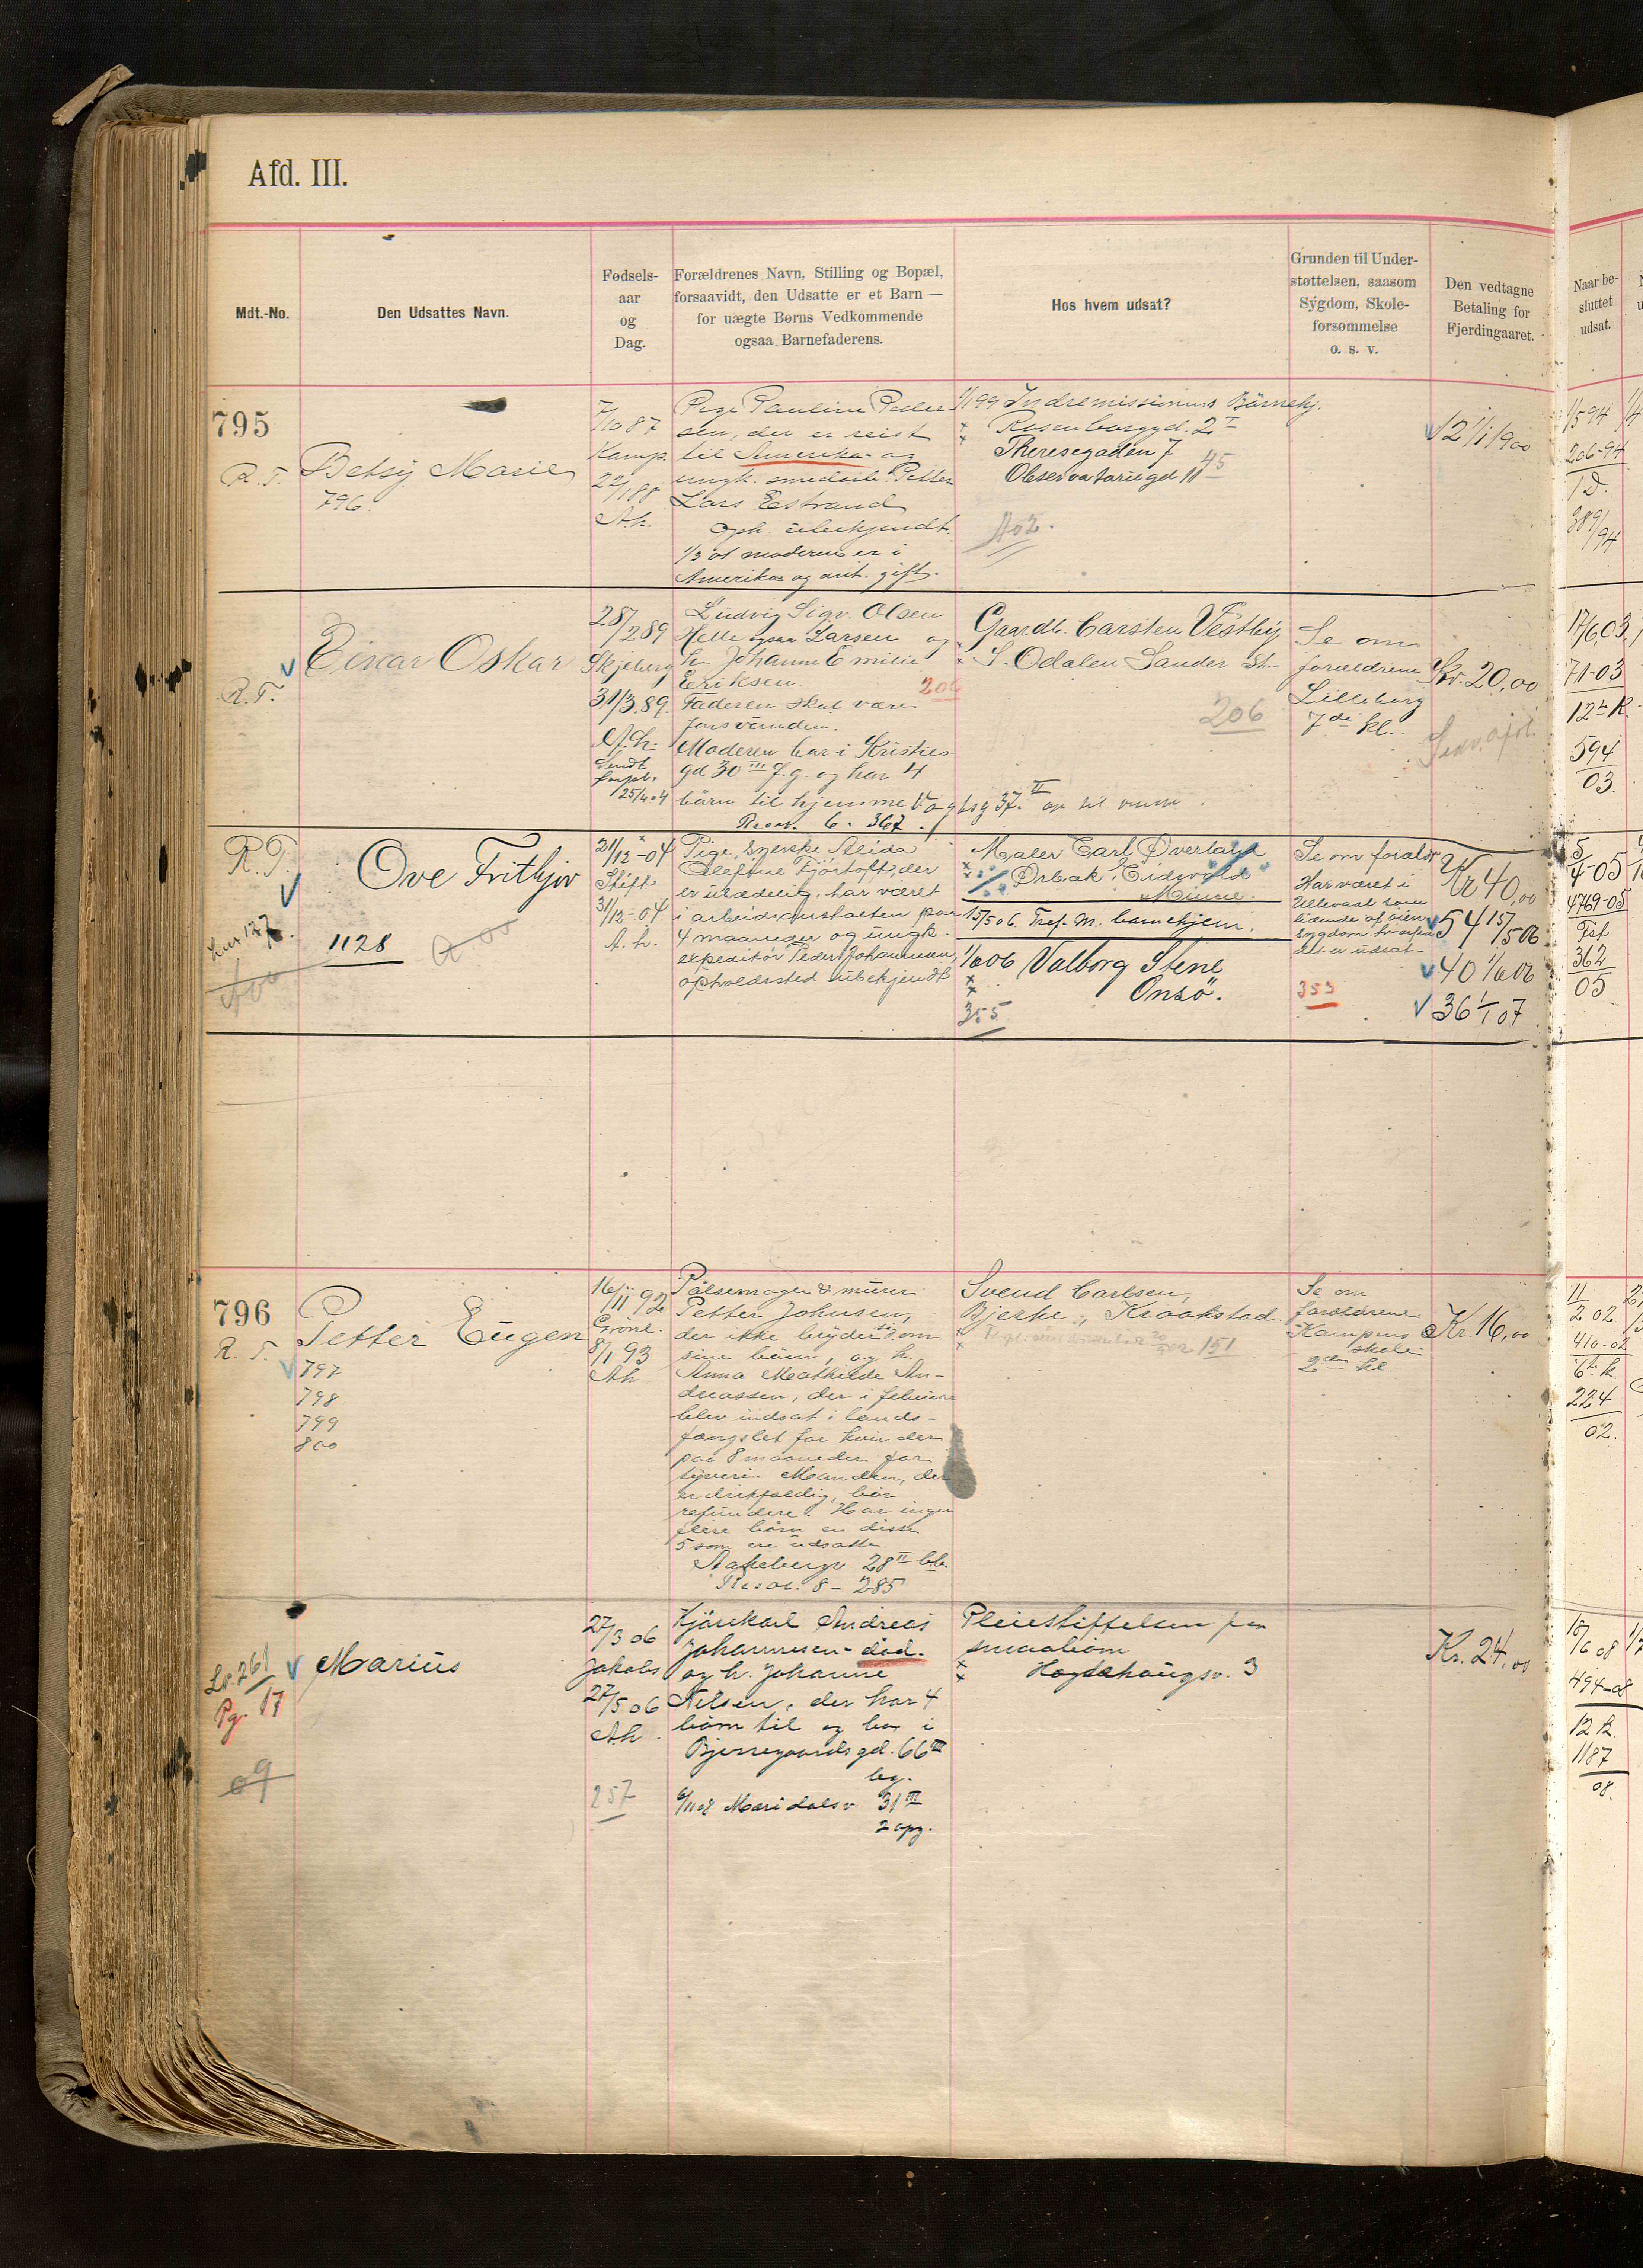 Afd. III.
Mdt.-No.
Den Udsattes Navn.
Fødsels-
aar
og
Dag.
Forældrenes Navn, Stilling og Bopæl,
forsaavidt, den Udsatte er et Barn —
for uægte Børns Vedkommende
ogsaa Barnefaderens.
Hos hvem udsat?
Grunden til Under-
støttelsen, saasom
Sygdom, Skole-
forsømmelse
o. s. v.
Den vedtagne
Betaling for
Fjerdingaaret.
Naar be-
sluttet
udsat.
795
R. T.
Betsy Marie
796.
7/10 87
Kamp.
22/1 88
A.k.
Pige Pauline Peder
sen, der er reist
til Amerika og
ungk. smedarb. Petter
Lars Eestrand
Oph. ubekjendt.
1/3 01 moderen er i
Amerika og ant. gift.
1/1 99 Indremissionens Börnehj.
Rosenborggd. 2 I
Theresegaden 7
Observatoriegd 11
45
12 1/1 900
1/5 94
206-94
TD.
389/94
R.T.
Einar Oskar
28/2 89
Skjeberg
31/3.89.
A.h.
Sendt
forpl.
25/4 04
Ludvig Sigv. Olsen
Helle ogsaa Larsen og
h. Johanne Emilie
Eriksen.
Faderen skal være
forsvunden.
Moderen bor i Kristies
gd 30 III f.g. og har 4
börn til hjemme Vogtsg 37. II
Resor. 6. 367.
Gaardb. Carsten Vestby
S. Odalen Sander St.
206
Se om
forældrene
Lilleborg
7de kl.
Kr. 20,00
17/6 03.
71-03
12te K.
594
03.
R.T.
Ove Frithjov
1128
21/12-04
Stift
31/12-04
A. h.
Pige, syerske Alida
Oleftine Fjörtoft, der
er usædelig, har været
i arbeidsanstalten paa
4 maaneder og ungk.
expeditör Peder Johannesen,
opholdssted ubekjendt
Maler Carl Øverland
Ørbæk, Eidsvold
Minne.
15/5 06. Tref. M. barnehjem.
1/10 06 Valborg Stene
Onsö.
355
Se om forældr
Har været i
Ullevaal som
lidende af øien
sygdom hvorfra
det er udsat.
353
Kr 40,00
54 15/5 06
40 1/10 06
36 1/1 07
5/4-05
4769-05
Tsf
362
05
796
R. T.
Petter Eugen
797
798
799
800
16/11 92
Grönl.
8/1 93
Ah.
Pölsemager & murer
Petter Johnsen,
der ikke bryder sig om
sine börn, og h.
Anna Mathilde An-
dreassen, der i februar
blev indsat i lands-
fængslet for kvinder
paa 8 maaneder for
tyveri. Manden, der
er drikfældig, bör
refundere. Har ingen
flere börn en disse
5 som ere udsatte
Aakebergv 28 II bb.
Resor. 8 - 285
Svend Carlsen,
Bjerke, Kraakstad
151
Se om
forældrene
Kampens
skole
2den kl.
Kr. 16,00
11/2 02.
410-02
6te k.
224
02.
Lv. 261
Pg. 17
09
Marius
27/3 06
Jakobs
27/5 06
Ah.
257
Kjörekarl Andreas
Johannesen - död.
og h. Johanne
Nilsen, der har 4
börn til og bor i
Bjerregaardsgd. 66 III
bg.
6/11 08 Maridalsv. 31 III
2 opg.
Pleiestiftelsen for
smaabörn
Hægdehaugsv. 3
Kr. 24,00
18/6 08
494-08
12 k.
1187
08.